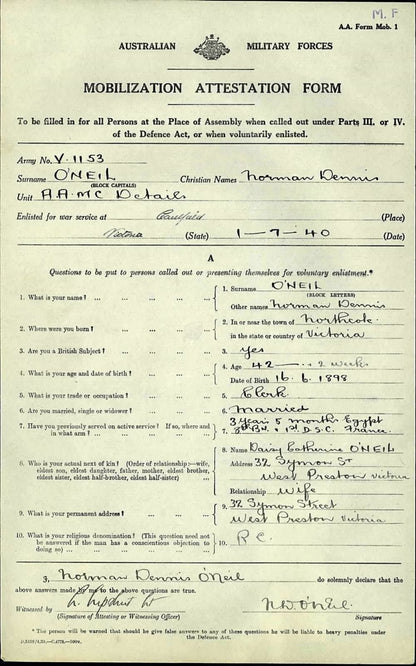 M. F
A.A. Form Mob. 1
AUSTRALIAN MILITARY FORCES
MOBILIZATION ATTESTATION FORM
To be filled in for all Persons at the Place of Assembly when called out under Parts III. or IV. of the Defence Act, or when voluntarily enlisted.
Army No. V.1153
Surname O'NEIL Christian Names Norman Dennis
(BLOCK CAPITALS)
Unit A.A.M.C Details
Enlisted for war service at Caulfield (Place)
Victoria (State) 1-7-40 (Date)
A
Questions to be put to persons called out or presenting themselves for voluntary enlistment.*
1. What is your name? ... 1. Surname O'NEIL
(BLOCK LETTERS)
Other names Norman Dennis
2. Where were you born? ... 2. In or near the town of Northcote
in the state or country of Victoria
3. Are you a British Subject? ... 3. Yes
4. What is your age and date of birth? ... 4. Age 42 — 2 weeks
Date of Birth 16.6.1898
5. What is your trade or occupation? ... 5. Clerk
6. Are you married, single or widower? ... 6. Married
7. Have you previously served on active service? If so, where and in what arm? ... 7. 3 years 5 months Egypt
8th Bn. & 1st D.S.C. France
8. Who is your actual next of kin? (Order of relationship:—wife, eldest son, eldest daughter, father, mother, eldest brother, eldest sister, eldest half-brother, eldest half-sister) 8. Name Daisy Catherine O'NEIL
Address 32 Symon St
West Preston Victoria
Relationship Wife
9. What is your permanent address? ... 9. 32 Symon Street
West Preston Victoria
10. What is your religious denomination? (This question need not be answered if the man has a conscientious objection to doing so) ... 10. R.C.
I, Norman Dennis O'Neil do solemnly declare that the
above answers made by me to the above questions are true.
Witnessed by Lt N.D. O'Neil.
(Signature of Attesting or Witnessing Officer) Signature
* The person will be warned that should he give false answers to any of these questions he will be liable to heavy penalties under the Defence Act.